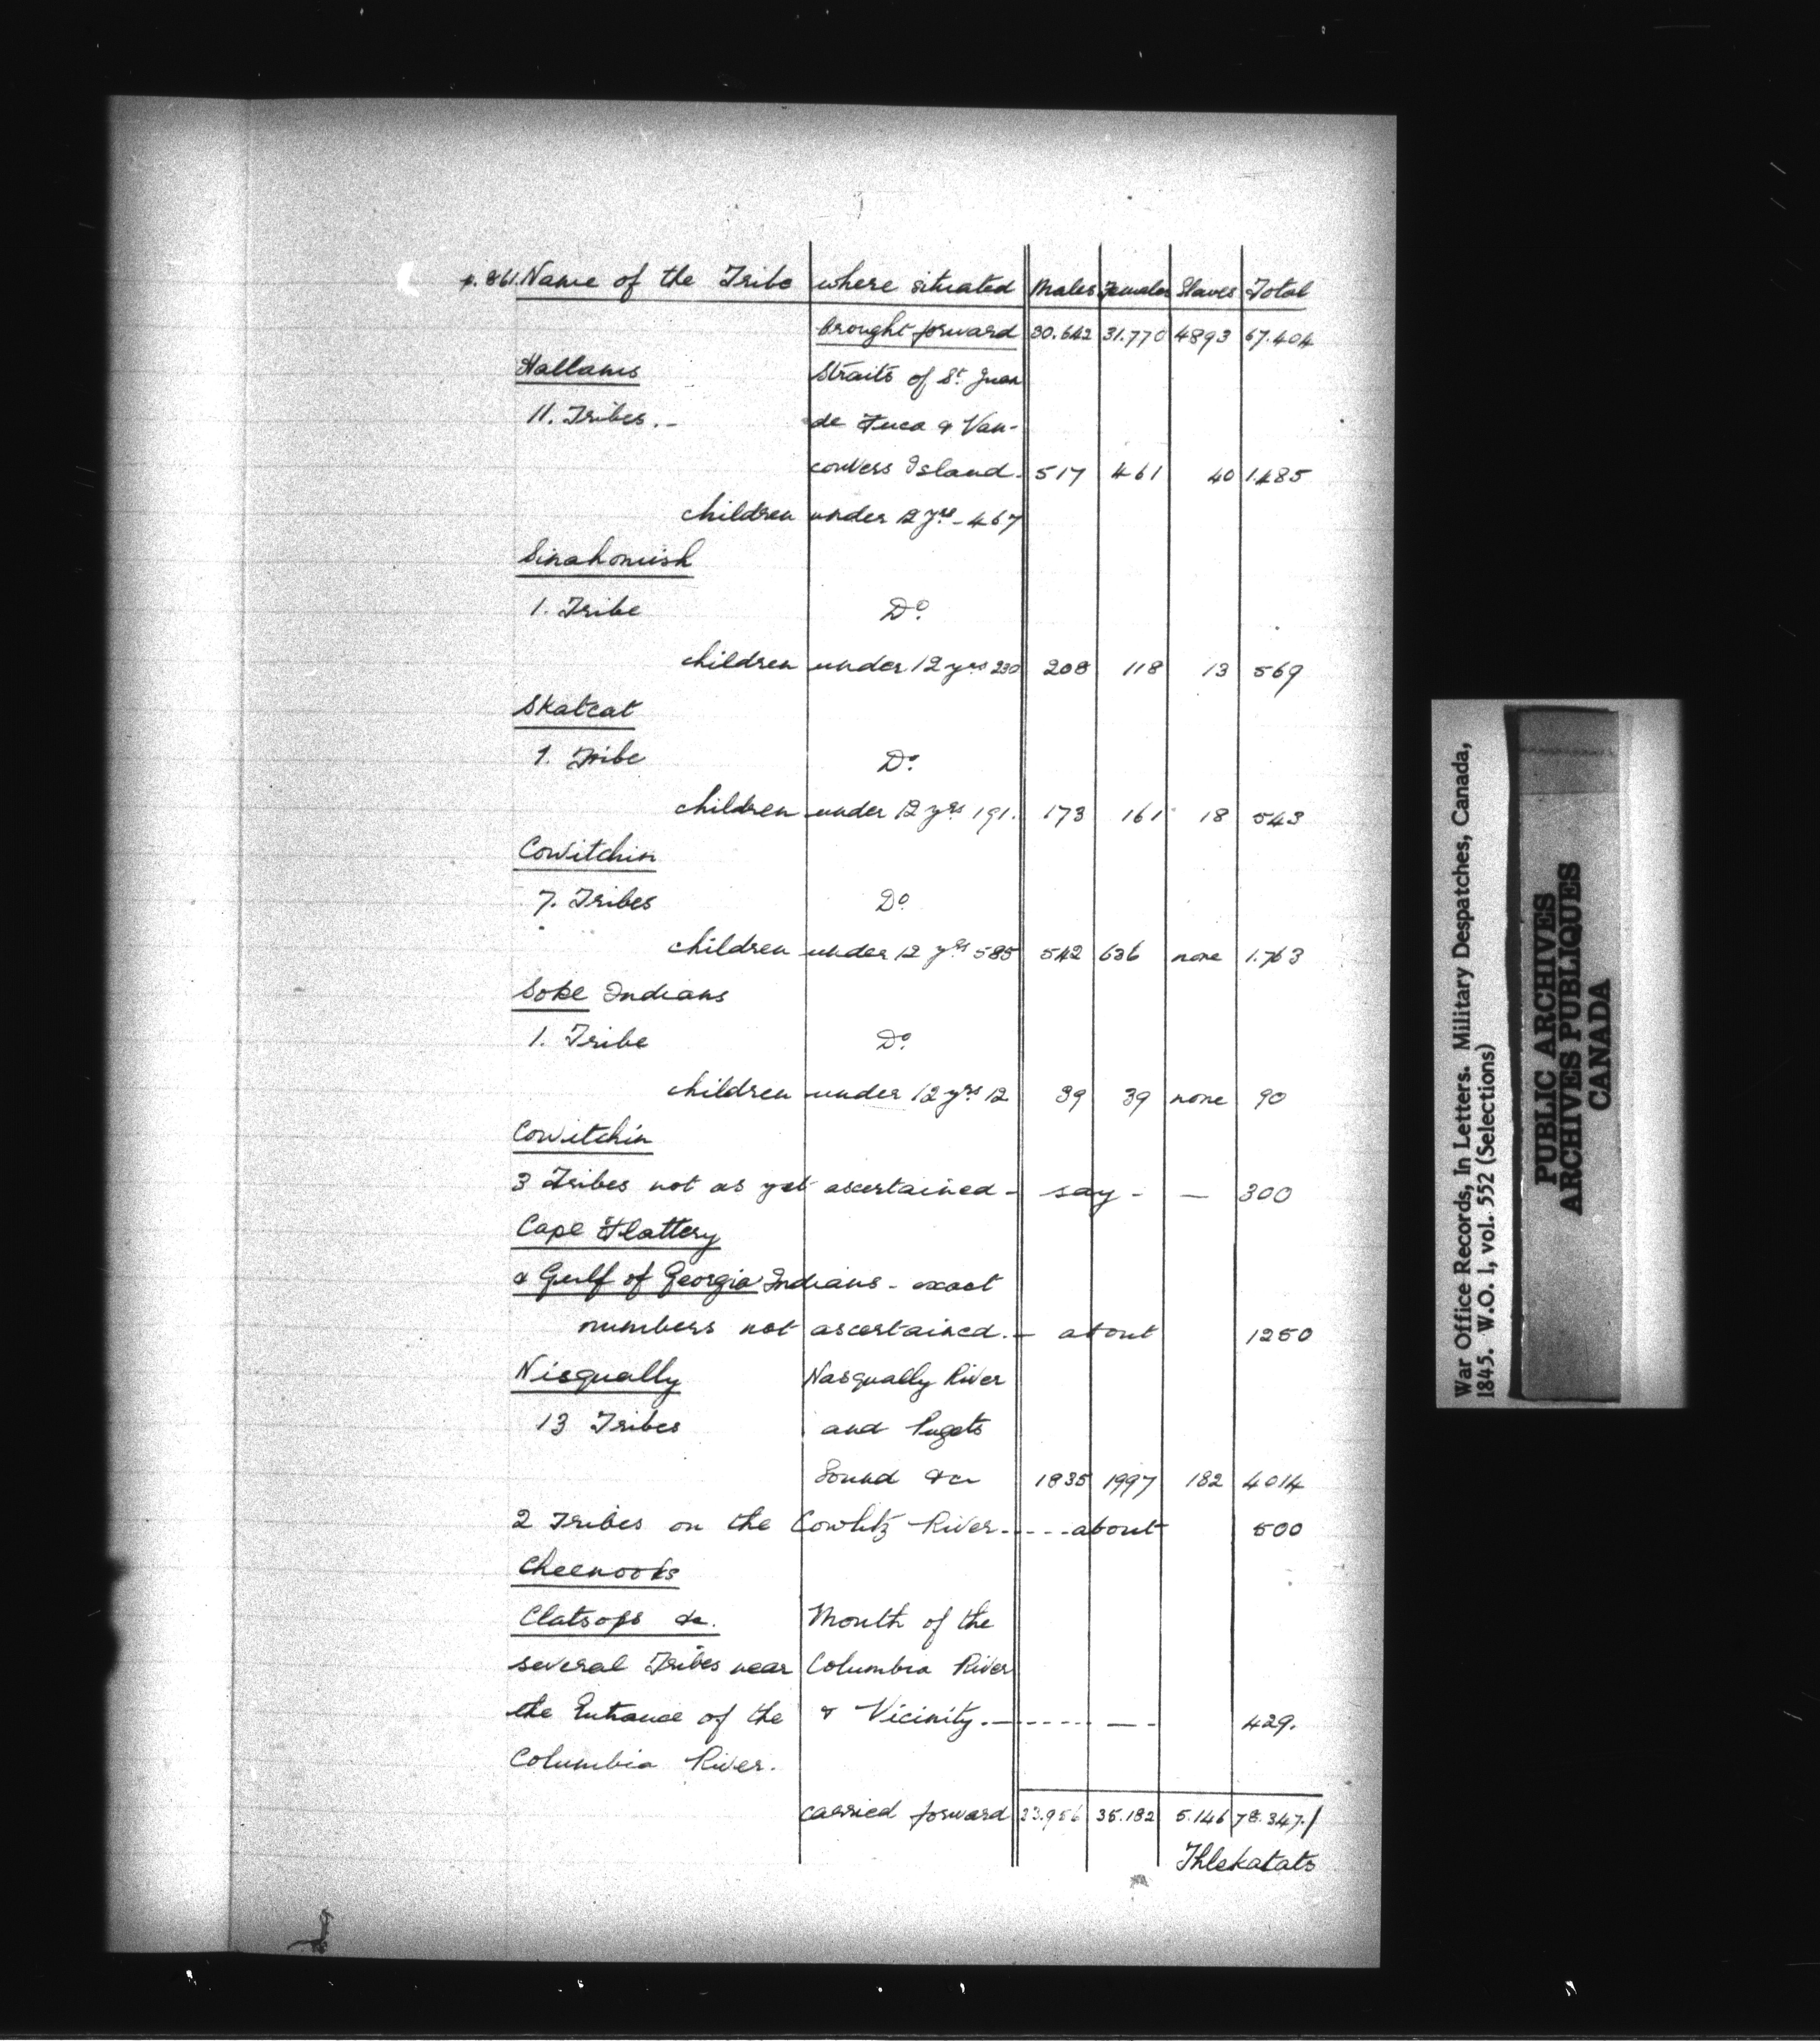 p. 861. Name of the Tribe where situated Males Females Slaves Total
brought forward 30.642 31.770 4893 67.404
Hallams Straits of St. Juan
11. Tribes. - de Fuca & Van-
couvers Island - 517 461 40 1.485
children under 12 yrs - 467
Sinahomish
1. Tribe Do.
children under 12 yrs 230 208 118 13 569
Skatcat
1. Tribe Do.
children under 12 yrs 191. 173 161 18 543
Cowitchin
7. Tribes Do
children under 12 yrs 585 542 636 none 1.763
Soke Indians
1. Tribe Do.
children under 12 yrs 12 39 39 none 90
Cowitchin
3 Tribes not as yet ascertained - say - — 300
Cape Flattery
& Gulf of Georgia Indians - exact
numbers not ascertained. - about 1250
Nisqually Nasqually River
13 Tribes and Pugets
Sound &c 1835 1997 182 4014
2 Tribes on the Cowlitz River - - - - about 500
Cheenooks
Clatsops &c. Mouth of the
several Tribes near Columbia River
the Entrance of the & Vicinity. - - - - - — - 429.
Columbia River.
carried forward 33.956 35.182 5.146 78.347./
Thlekatats
War Office Records, In Letters. Military Despatches, Canada,
1845. W.O. 1, vol. 552 (Selections)
PUBLIC ARCHIVES
ARCHIVES PUBLIQUES
CANADA